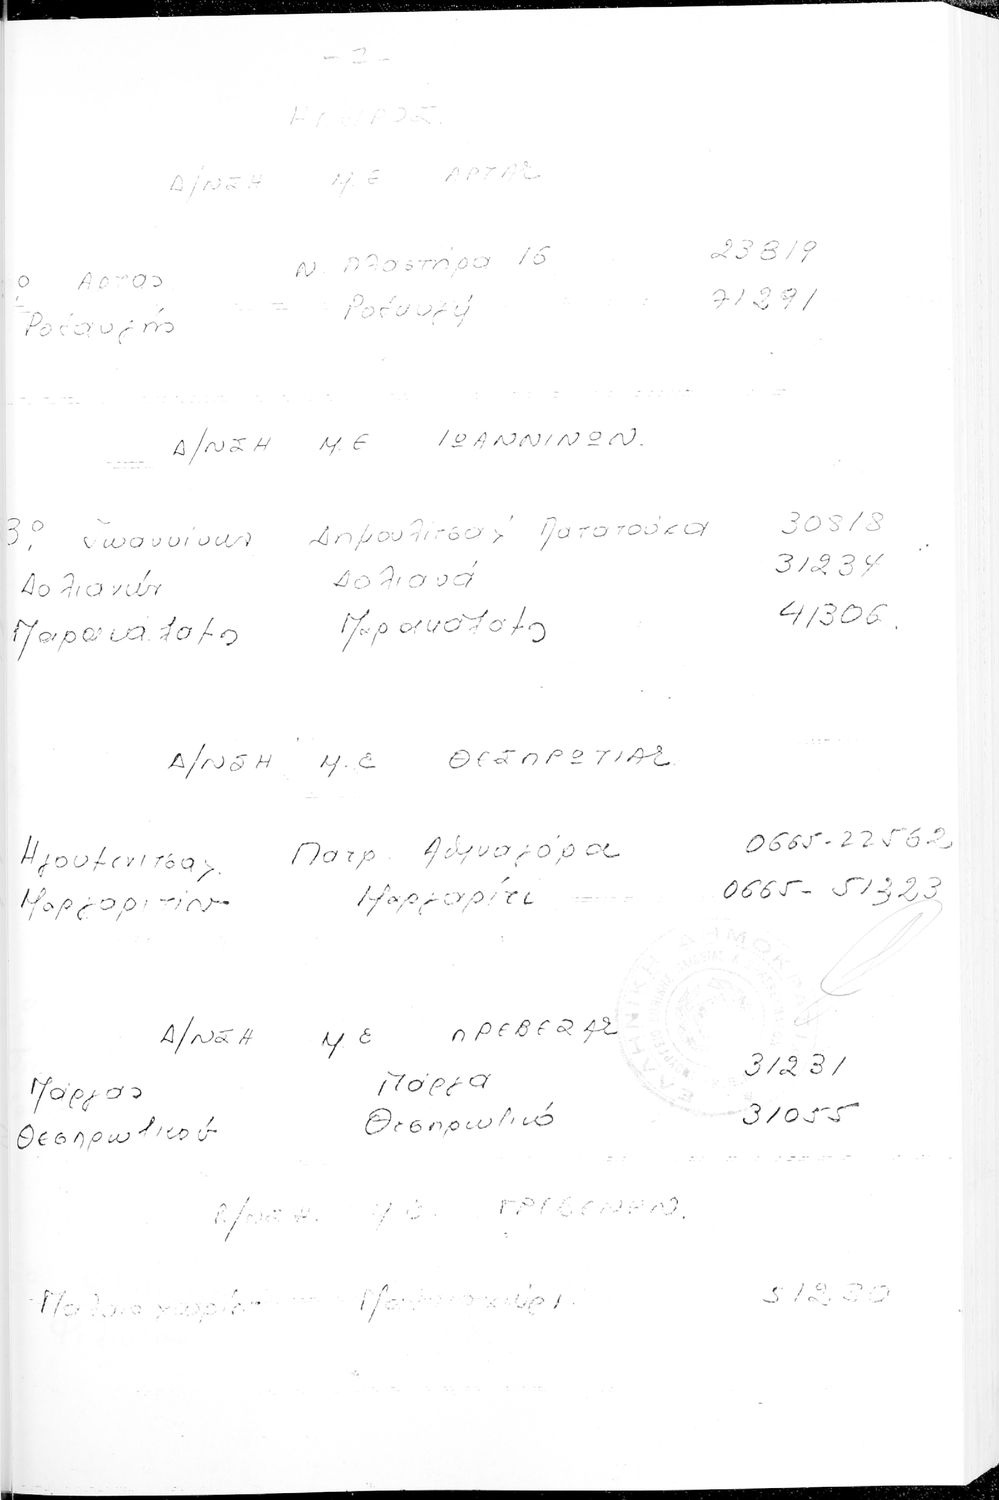 ΗΠΕΙΡΟΣ.
Δ/ΝΣΗ Μ.Ε ΑΡΤΑΣ
Αρτας Ν. Πλαστήρα 16 23819
Ροδαυγής Ροδαυγή 71291
Δ/ΝΣΗ Μ.Ε ΙΩΑΝΝΙΝΩΝ.
3ο Ιωαννίνων Δημουλίτσας Πατατούκα 30818
Δολιανών Δολιανά 31234
Παρακαλάμς Παρακαλάμς 41306.
Δ/ΝΣΗ Μ.Ε ΘΕΣΠΡΩΤΙΑΣ
Ηγουμενίτσας. Πατρ. Αθηναγόρα 0665-22562
Μαργαριτίου Μαργαρίτι 0665-51323
ΕΛΛΗΝΙΚΗ ΔΗΜΟΚΡΑΤΙΑ
Δ/ΝΣΗ Μ Ε ΠΡΕΒΕΖΑΣ
Πάργας Πάργα 31231
Θεσπρωτικού Θεσπρωτικό 31055
Δ/ΝΣΗ. Μ.Ε. ΓΡΕΒΕΝΩΝ.
51230